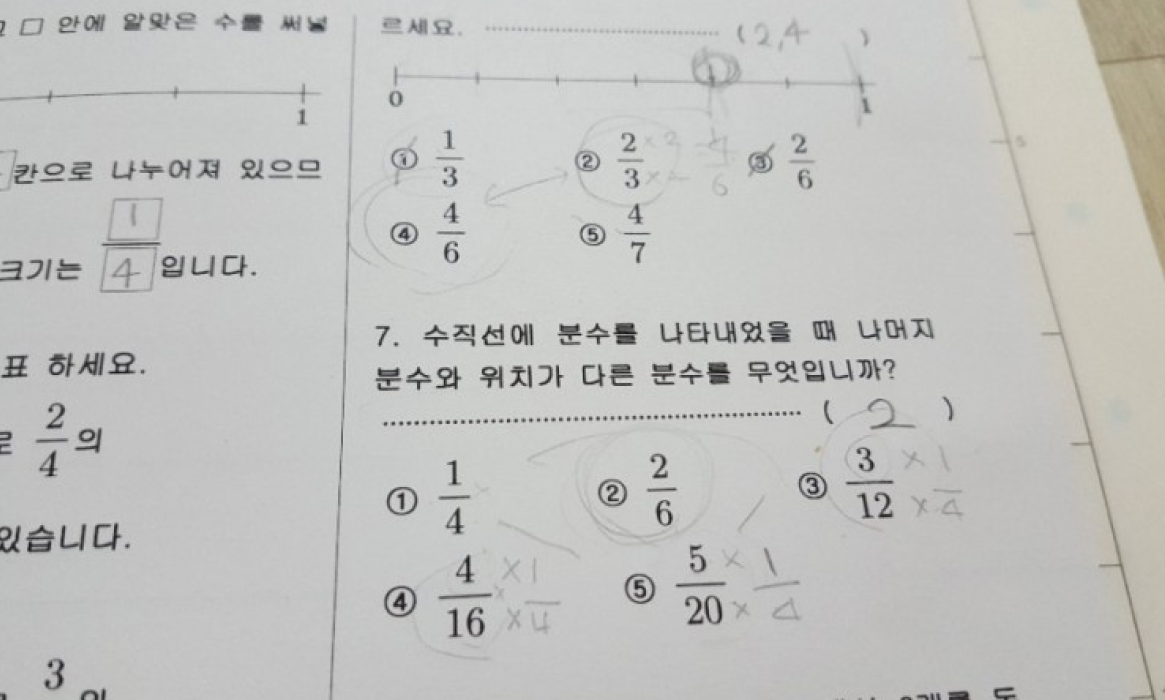 □ 안에 알맞은 수를 써넣
1
칸으로 나누어져 있으므
크기는 1/4 입니다.
표 하세요.
2/4 의
있습니다.
3
르세요. (2,4 )
0 1
① 1/3 ② 2/3 4/6 ③ 2/6
④ 4/6 ⑤ 4/7
7. 수직선에 분수를 나타내었을 때 나머지
분수와 위치가 다른 분수를 무엇입니까?
( 2 )
① 1/4 ② 2/6 ③ 3/12 ×1 ×4
④ 4/16 ×1 ×4 ⑤ 5/20 × 1 × 4